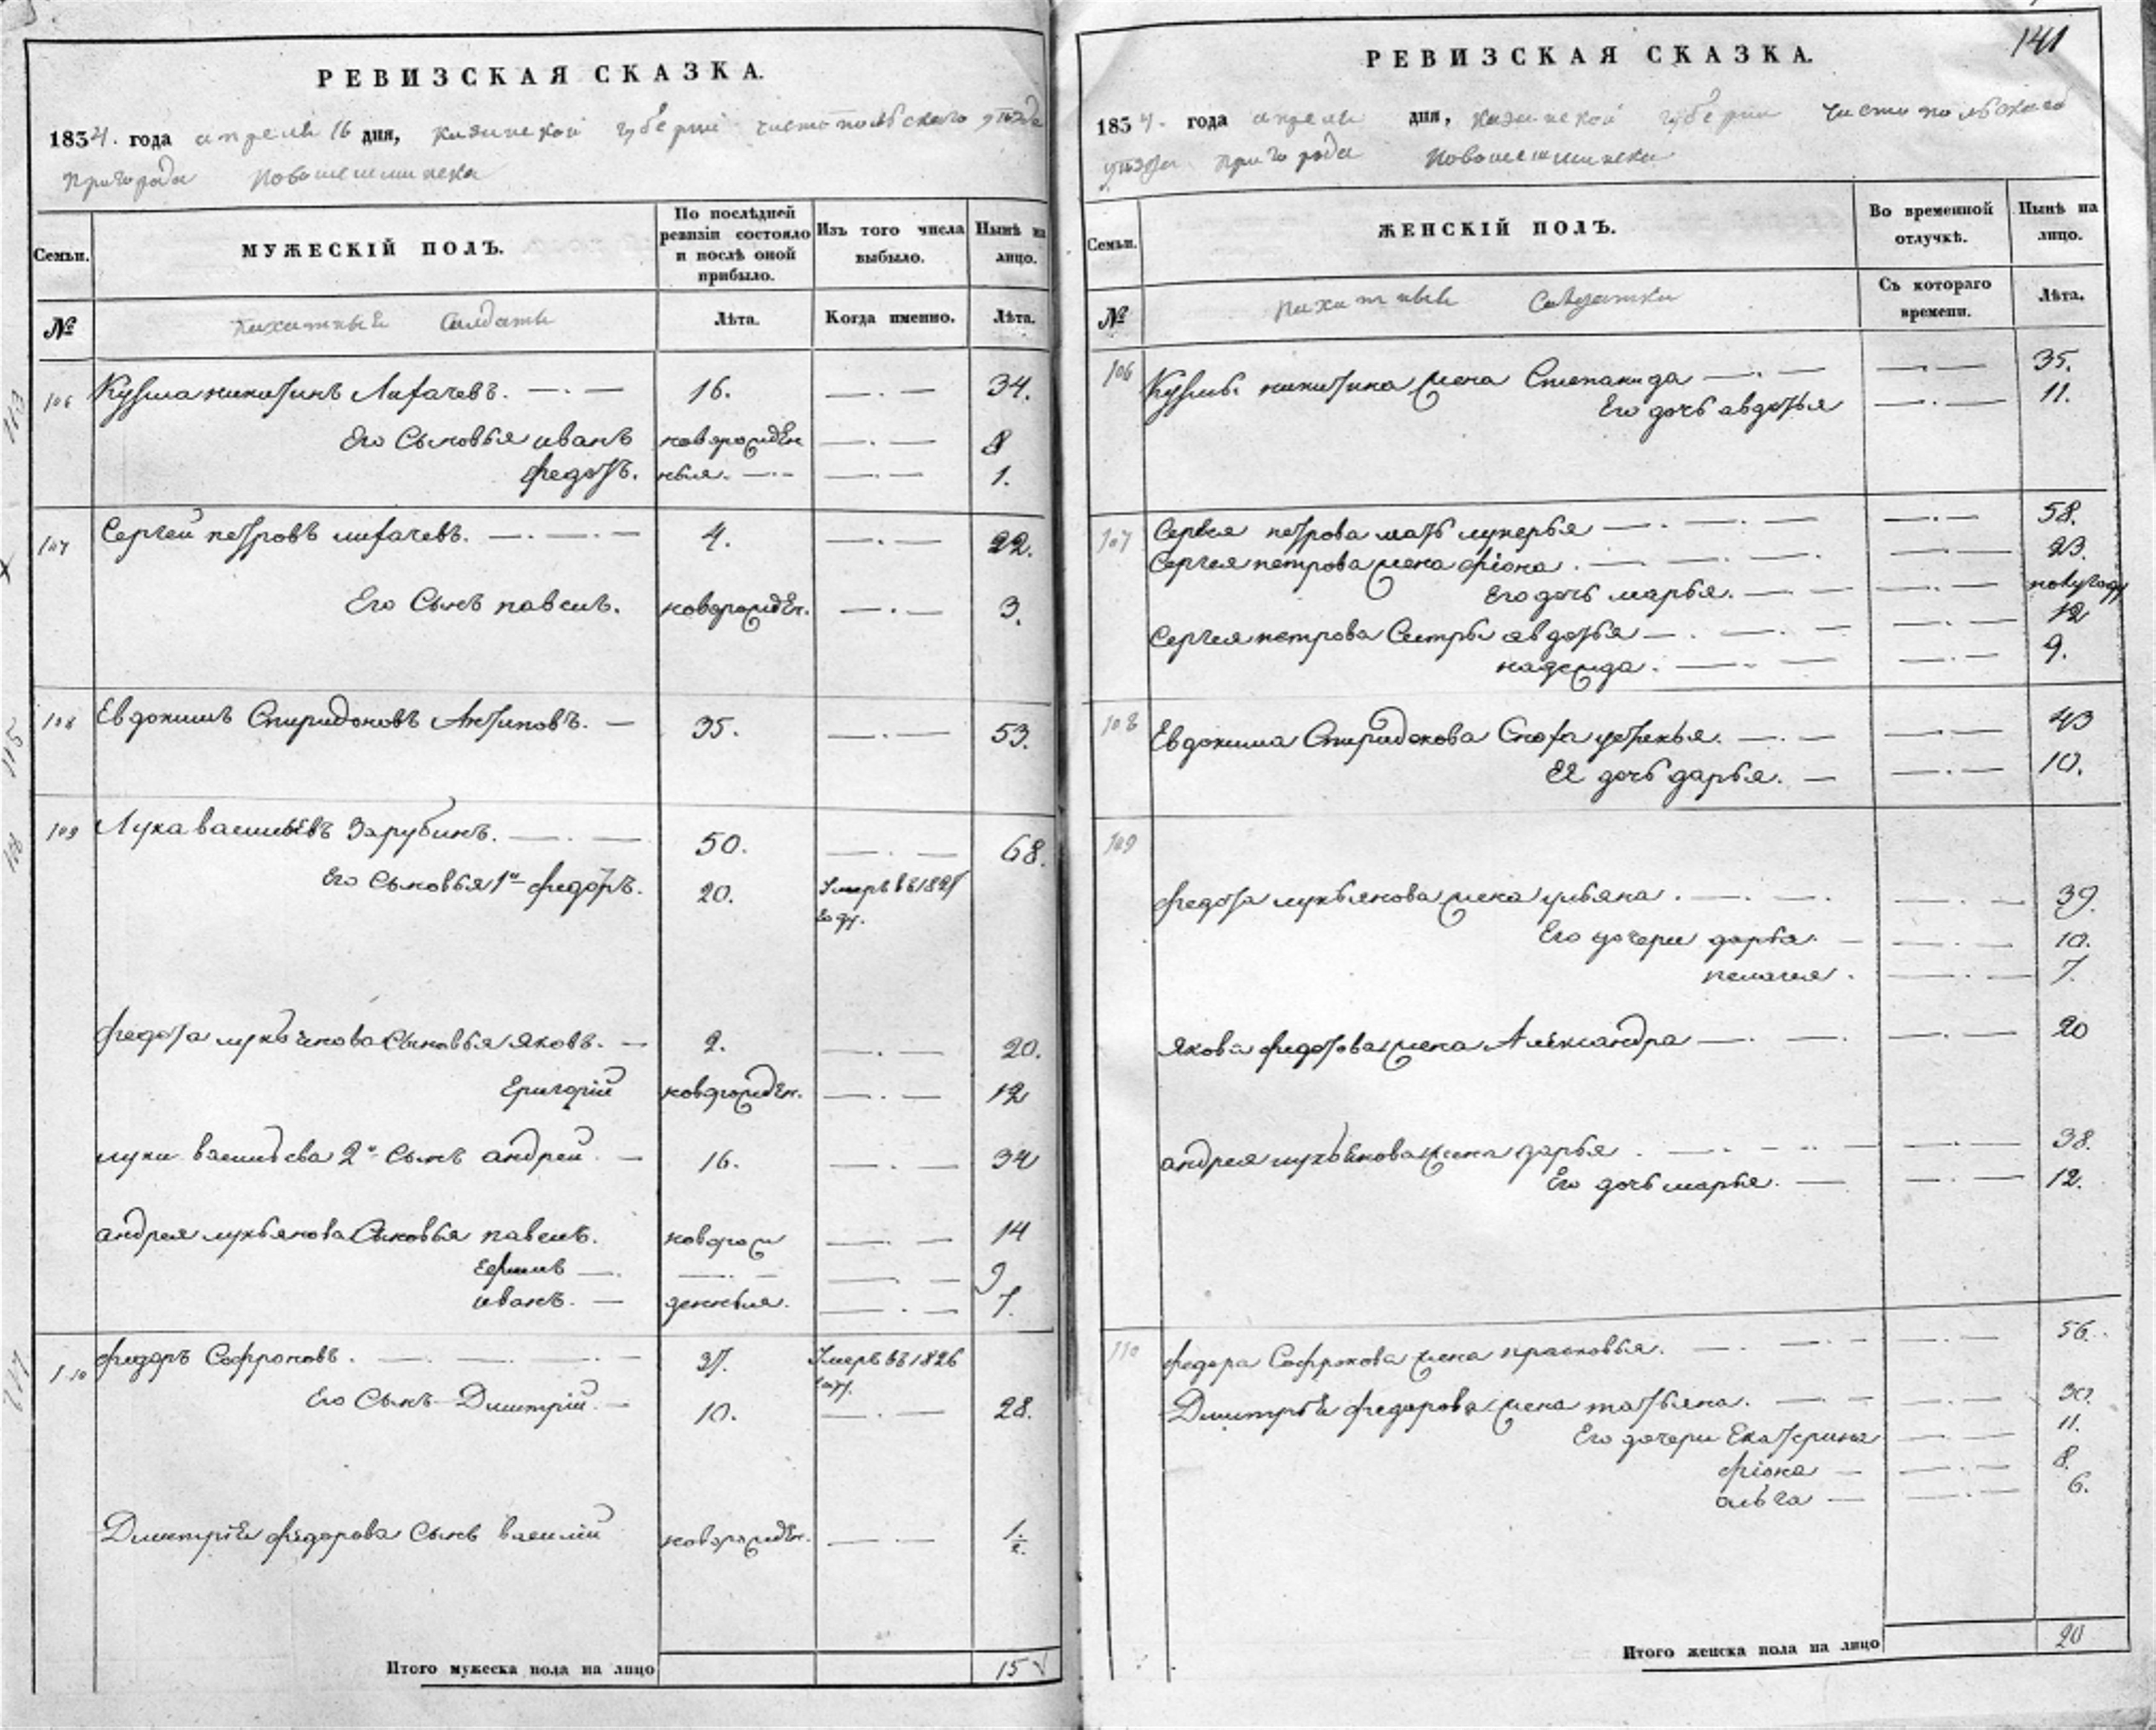 РЕВИЗСКАЯ СКАЗКА.
1834. года апреля 16 дня, казанской губернии чистопольского уѣзда
пригорода новошешминска
Семьи.
МУЖЕСКІЙ ПОЛЪ.
По послѣдней ревизіи состояло и послѣ оной прибыло.
Изъ того числа выбыло.
Нынѣ на лицо.
№
пахатныя Солдаты
Лѣта.
Когда именно.
Лѣта.
106 Кузма никитинъ Лихачевъ. 16. 34.
Его Сыновья иванъ новорожден 8
федотъ. ныя. 1.
107 Сергей петровъ лихачевъ. 4. 22.
Его Сынъ павелъ. новорожден. 3.
108 Евдокимъ Спиридоновъ Антиповъ. 35. 53.
109 Лука васильевъ Зарубинъ. 50. 68.
Его Сыновья 1й федотъ. 20. Умеръ въ 1827
году.
федота лукьянова Сыновья яковъ. 2. 20.
Григорій новорожден. 12
луки васильева 2й Сынъ андрей 16. 34
андрея лукьянова Сыновья павелъ. новорож 14
Ефимъ 9
иванъ. денныя. 7.
110 федоръ Софроновъ. 37. Умеръ въ 1826
году.
Его Сынъ Дмитрій. 10. 28.
Дмитрія федорова Сынъ василій новорожден. 1/2.
Итого мужеска пола на лицо 15
113
115
117
141
РЕВИЗСКАЯ СКАЗКА.
1834. года апреля дня, казанской губернии чистопольского
уѣзда пригорода новошешминска
Семьи.
ЖЕНСКІЙ ПОЛЪ.
Во временной отлучкѣ.
Нынѣ на лицо.
№
пахатныя Солдатки
Съ котораго времени.
Лѣта.
106 Кузмы никитина жена Степанида 35.
Его дочь авдотья 11.
107 Сергея петрова мать лукерья 58.
Сергея петрова жена фіона. 23.
Его дочь марья. полугоду
Сергея петрова Сестры авдотья 12
надежда. 9.
108 Евдокима Спиридонова Сноха устинья. 43
Ея дочь дарья. 10.
109
федота лукьянова жена ульяна. 39.
Его дочери дарья. 10.
пелагея. 7.
якова федотова жена Александра 20
андрея лукьянова жена дарья. 38.
Его дочь марья. 12.
110 федора Софронова жена прасковья. 56.
Дмитрія федорова жена татьяна. 30.
Его дочери Екатерина 11.
фіона 8.
ольга 6.
Итого женска пола на лицо 20